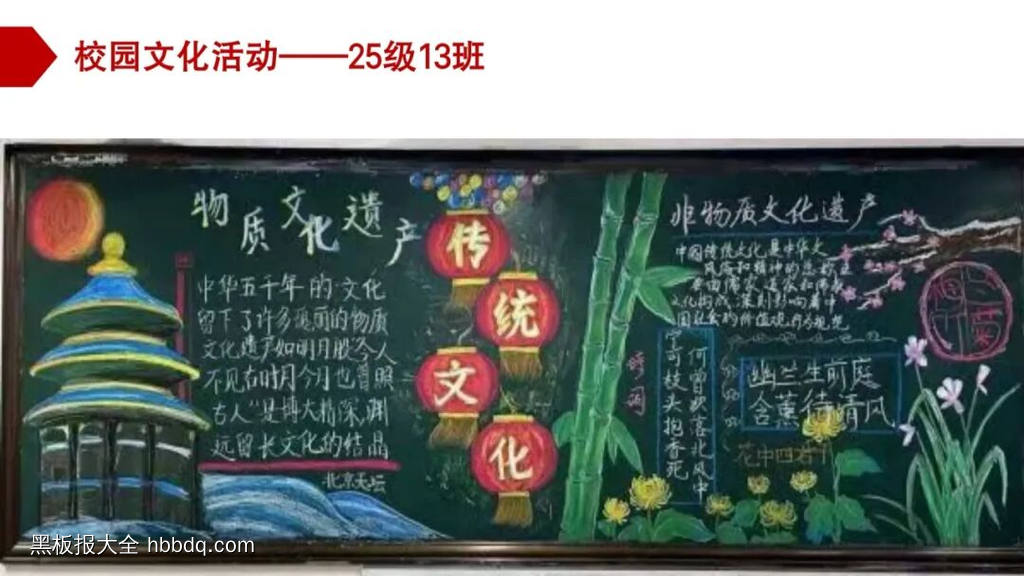 校园文化活动——25级13班
物质文化遗产
中华五千年的文化
留下了许多
的物质
文化遗产如明月般今人
不见古时月今月也曾照
古人”是博大精深、渊
远留长文化的结晶
北京天坛
传
统
文
化
非物质文化遗产
中国传统文化是中华民
文化构成深刻影响着中
国社会的价值观、行为规范
诗词
宁可枝头抱香死
何曾吹落北风中
幽兰生前庭
含薰待清风
花中四君子
黑板报大全 hbbdq.com